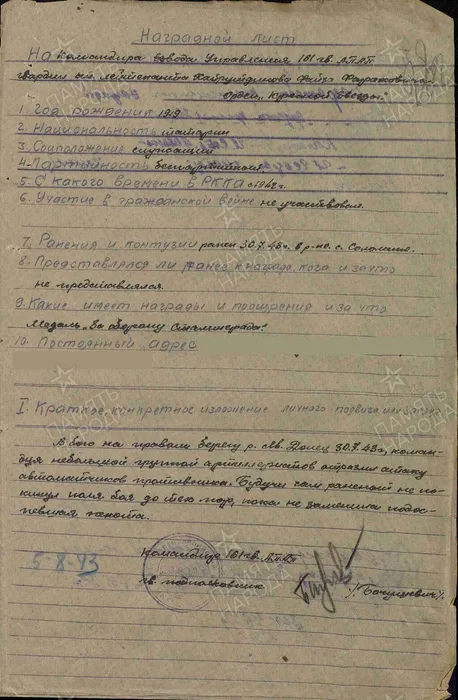 Наградной лист
На Командира взвода Управления 161 гв. АПАП
гвардии ст. лейтенанта Хайрутдинова
Орден „Красной Звезды"
1. Год рождения 1919
2. Национальность татарин
3. Соцположение служащий
4. Партийность беспартийный
5. С какого времени в РККА с 1942 г.
6. Участие в гражданской войне не участвовал.
7. Ранения и контузии ранен 30.7.43 г. в р-не. с.
8. Представлялся ли ранее к награде, кога и за что
не представлялся.
9. Какие имеет награды и поощрения и за что
Медаль „За оборону Сталинграда"
10. Постоянный адрес
I. Краткое, конкретное изложение личного подвига или заслуг
В бою на правом берегу р. Св. Донец 30.7.43 г, коман-
дуя небольшой группой артиллеристов отразил атаку
автоматчиков противника. Будучи сам раненый не по-
кинул поля боя до тех пор, пока не заменила подос-
певшая пехота.
Командир 161 гв. АПАП
5-8-43
гв. подполковник
/Бачушевич/.
ПАМЯТЬ НАРОДА